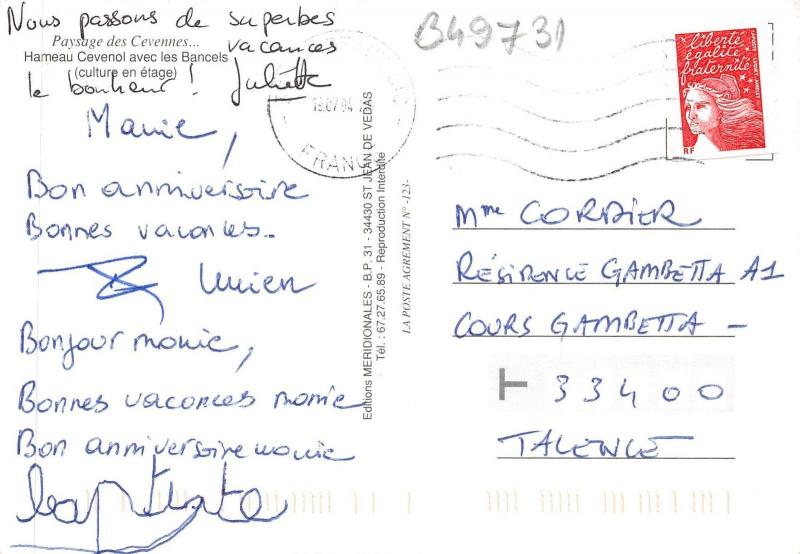 Nous passons de superbes
vacances
le bonheur ! Juliette
Paysage des Cevennes...
Hameau Cevenol avec les Bancels
(culture en étage)
Mamie,
Bon anniversaire
Bonnes vacances.
Lucien
Bonjour mamie,
Bonnes vacances mamie
Bon anniversaire mamie
baptiste
Editions MERIDIONALES - B.P. 31 - 34430 ST JEAN DE VEDAS
Tél. : 67.27.65.89 - Reproduction Interdite
LA POSTE AGREMENT N° -123-
B49731
FRANCE
liberté
égalité
fraternité
RF
Mme CORDIER
RÉSIDENCE GAMBETTA A1
COURS GAMBETTA -
33400
TALENCE